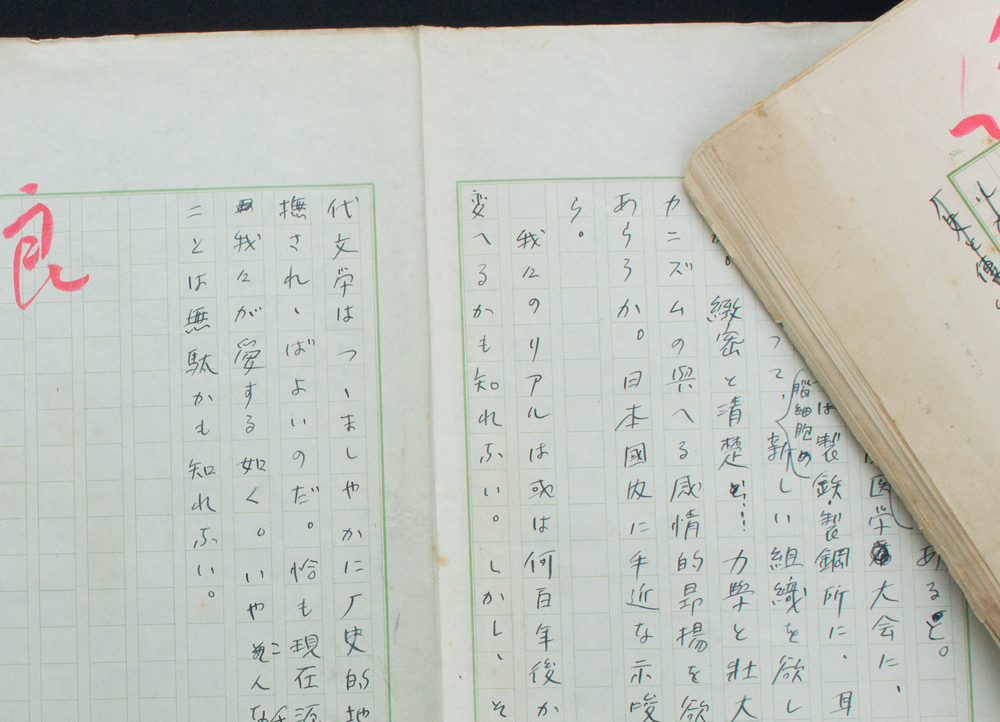 ある
医学大会に、
は製鉄・製鋼所に、耳
脳細胞の
って、新しい組織を欲し
緻密と清楚と……力學と壮大
カニズムの與へる感情的昻揚を欲
あらうか。日本國内に手近な示唆
ら。
我々のリアルは或は何百年後か
変へるかも知れない。しかし、そ
代文学はつゝましやかに歴史的地
撫されゝばよいのだ。恰も現在源
我々が愛する如く。いや
ことは無駄かも知れない。
良
No.